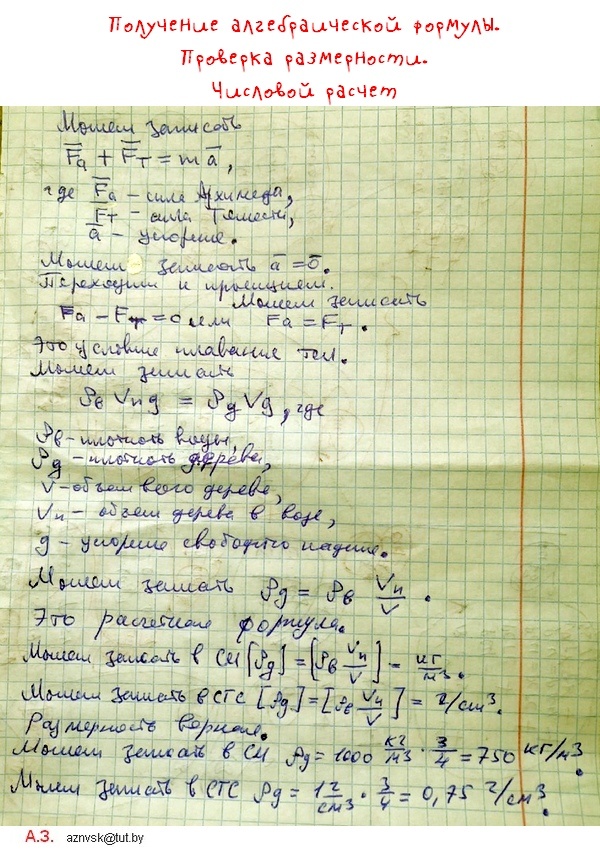 Получение алгебраической формулы.
Проверка размерности.
Числовой расчет
Можем записать
F̅а + F̅т = m a̅,
где F̅а – сила Архимеда,
F̅т – сила Тяжести,
a̅ – ускорение.
Можем записать a̅ = 0̅.
Переходим к проекциям.
Можем записать
Fа – Fт = 0 или Fа = Fт.
Это условие плавание тел.
Можем записать
ρв Vп g = ρд V g, где
ρв – плотность воды,
ρд – плотность дерева,
V – объем всего дерева,
Vп – объем дерева в воде,
g – ускорение свободного падения.
Можем записать ρд = ρв Vп/V.
Это расчетная формула.
Можем записать в СИ [ρд] = [ρв Vп/V] = кг/м³.
Можем записать в СГС [ρд] = [ρв Vп/V] = г/см³.
Размерность верная.
Можем записать в СИ ρд = 1000 кг/м³ · 3/4 = 750 кг/м³.
Можем записать в СГС ρд = 1 г/см³ · 3/4 = 0,75 г/см³.
А.З. aznvsk@tut.by